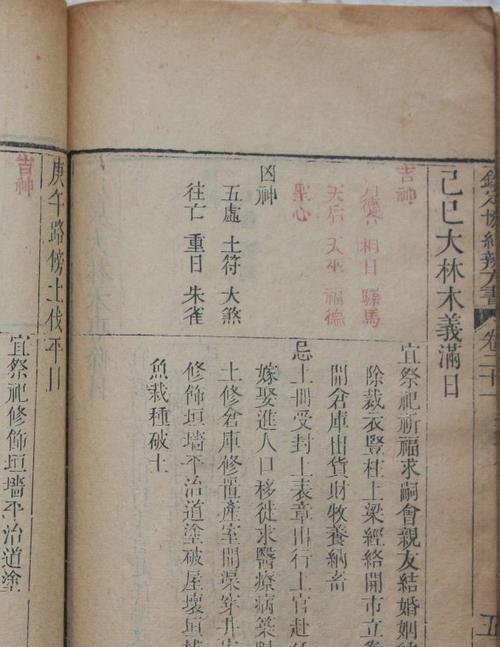 欽定協紀辨方書 卷二十一 五
己巳大林木義滿日
吉神
月德 相日 驛馬
天后 天巫 福德
聖心
凶神
五虛 土符 大煞
往亡 重日 朱雀
宜祭祀祈福求嗣會親友結婚姻
除裁衣豎柱上梁經絡開市立
開倉庫出貨財牧養納畜
忌上冊受封上表章出行上官赴
嫁娶進人口移徙求醫療病築
土修倉庫修置產室開渠穿井
修飾垣墻平治道塗破屋壞垣
魚栽種破土
庚午路傍土伐平日
吉神
宜祭祀修飾垣墻平治道塗